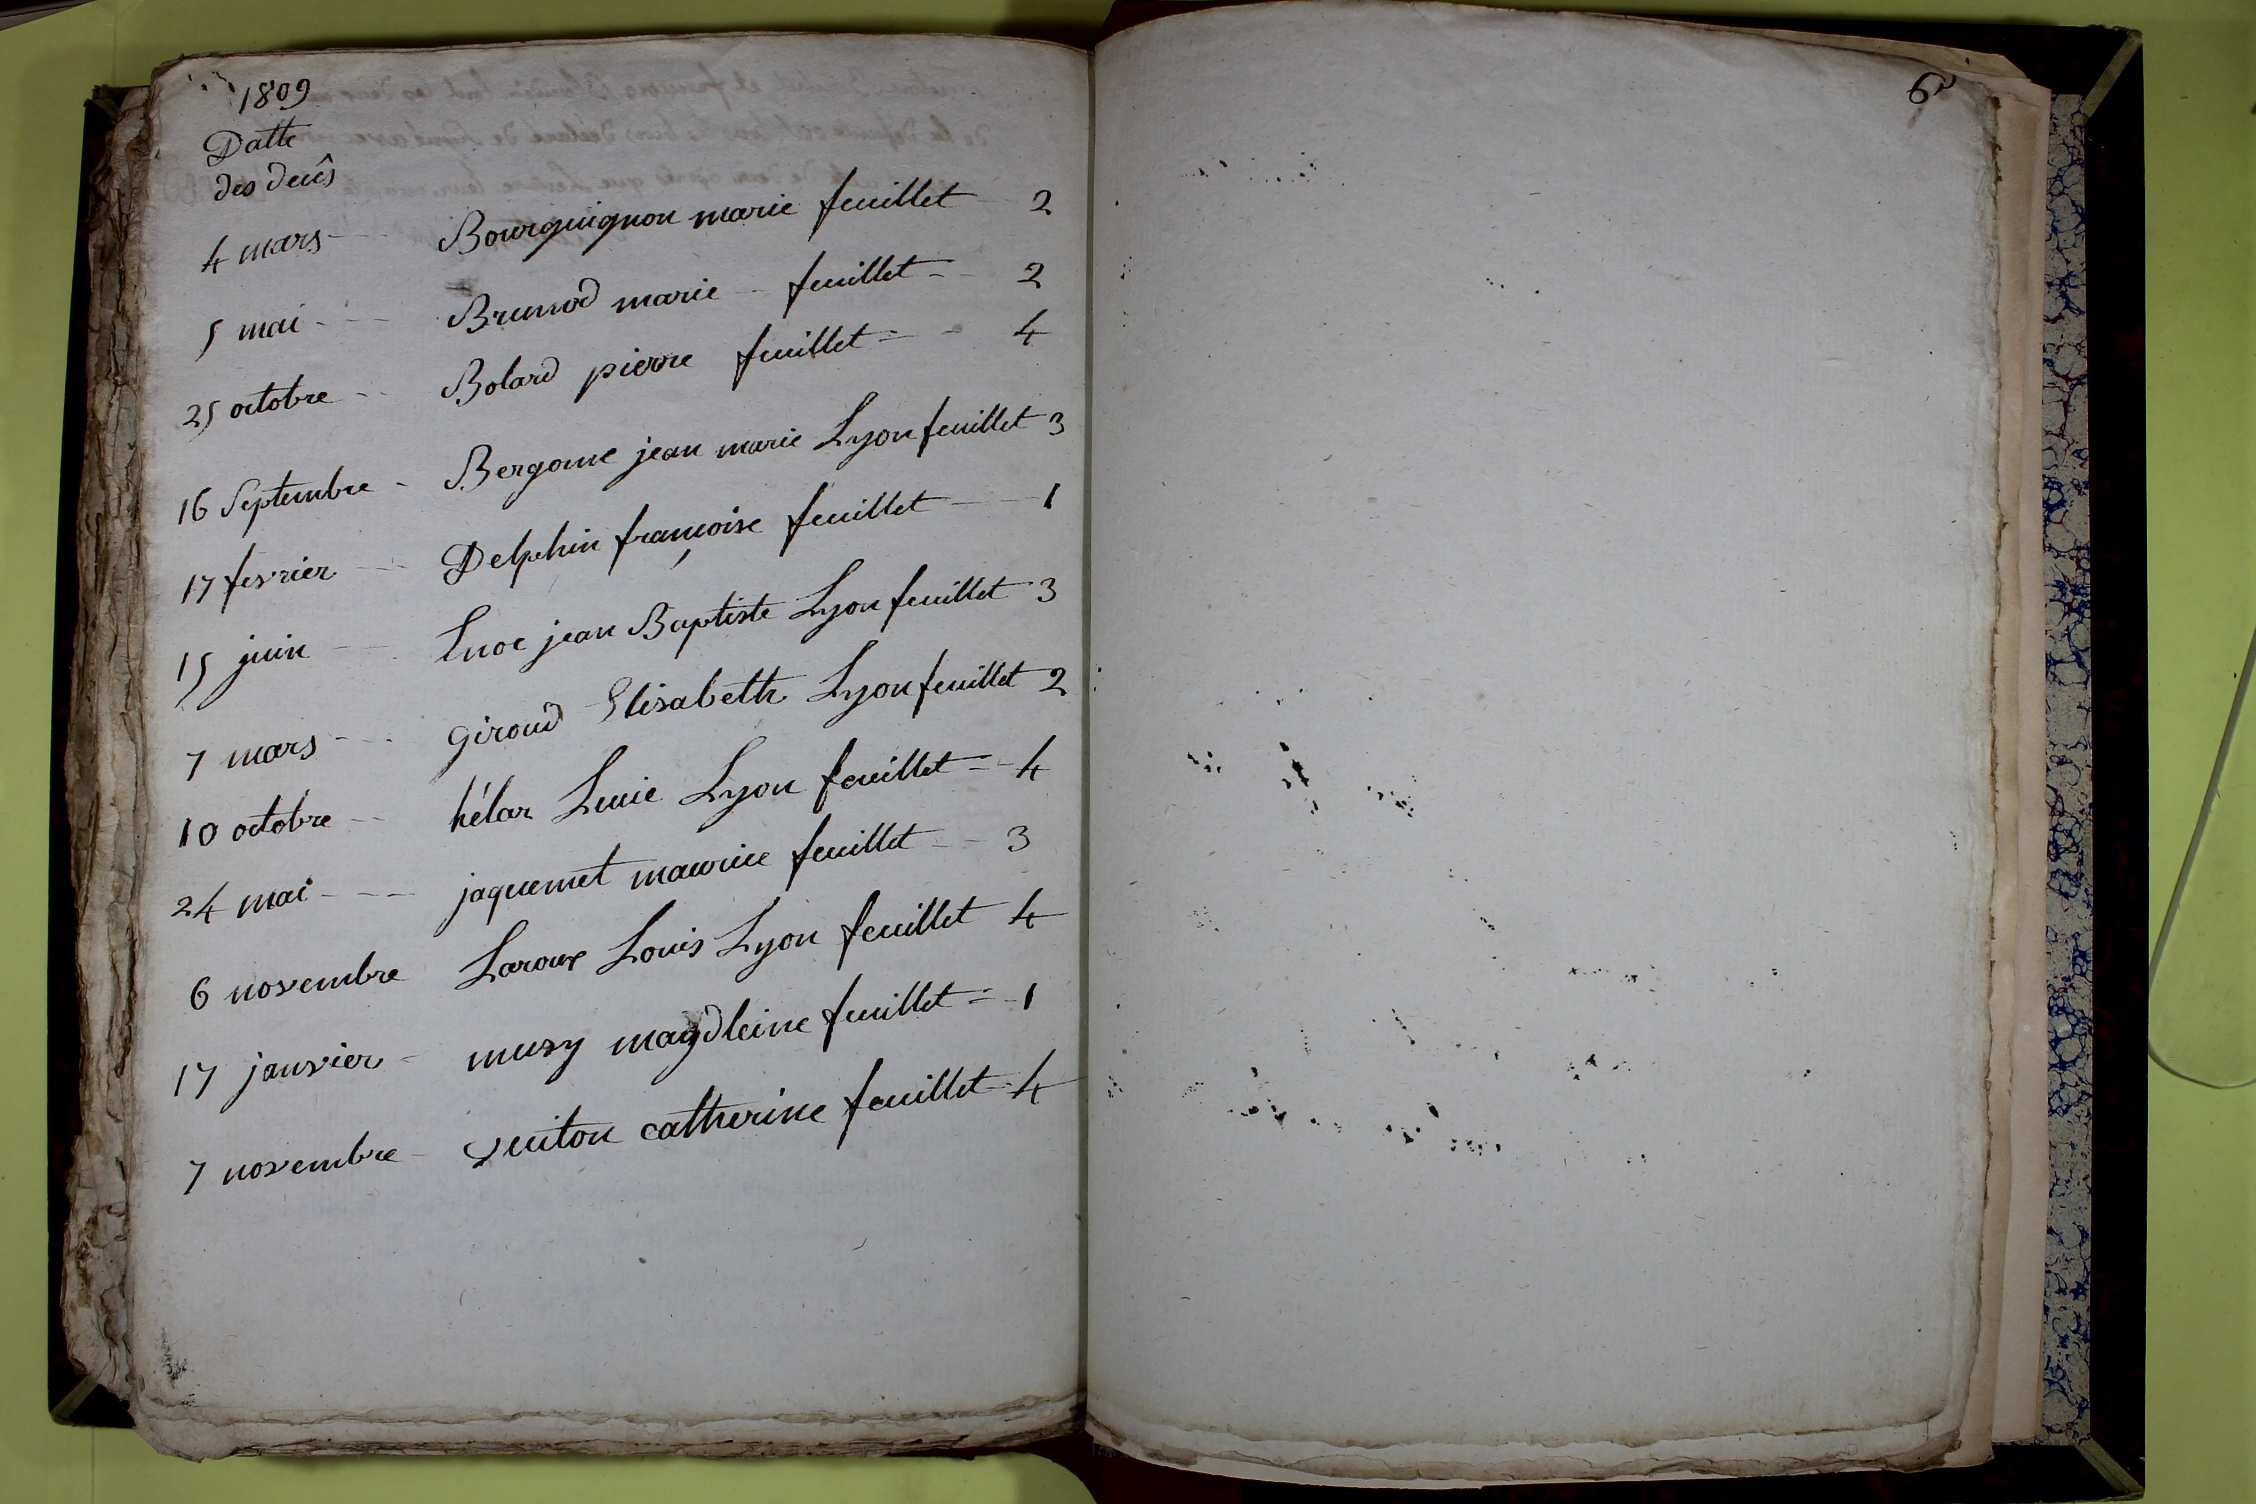 1809
Datte
des decês
4 mars Bourguignon marie feuillet 2
5 mai Brunod marie feuillet 2
25 octobre Bolard pierre feuillet 4
16 Septembre Bergome jean marie Lyon feuillet 3
17 fevrier Delphin françoise feuillet 1
15 juin Enoc jean Baptiste Lyon feuillet 3
7 mars giroud Elisabeth Lyon feuillet 2
10 octobre hélar Lucie Lyon feuillet 4
24 mai jaquemet maurice feuillet 3
6 novembre Laroux Louis Lyon feuillet 4
17 janvier musy magdleine feuillet 1
7 novembre vuiton catherine feuillet 4
6